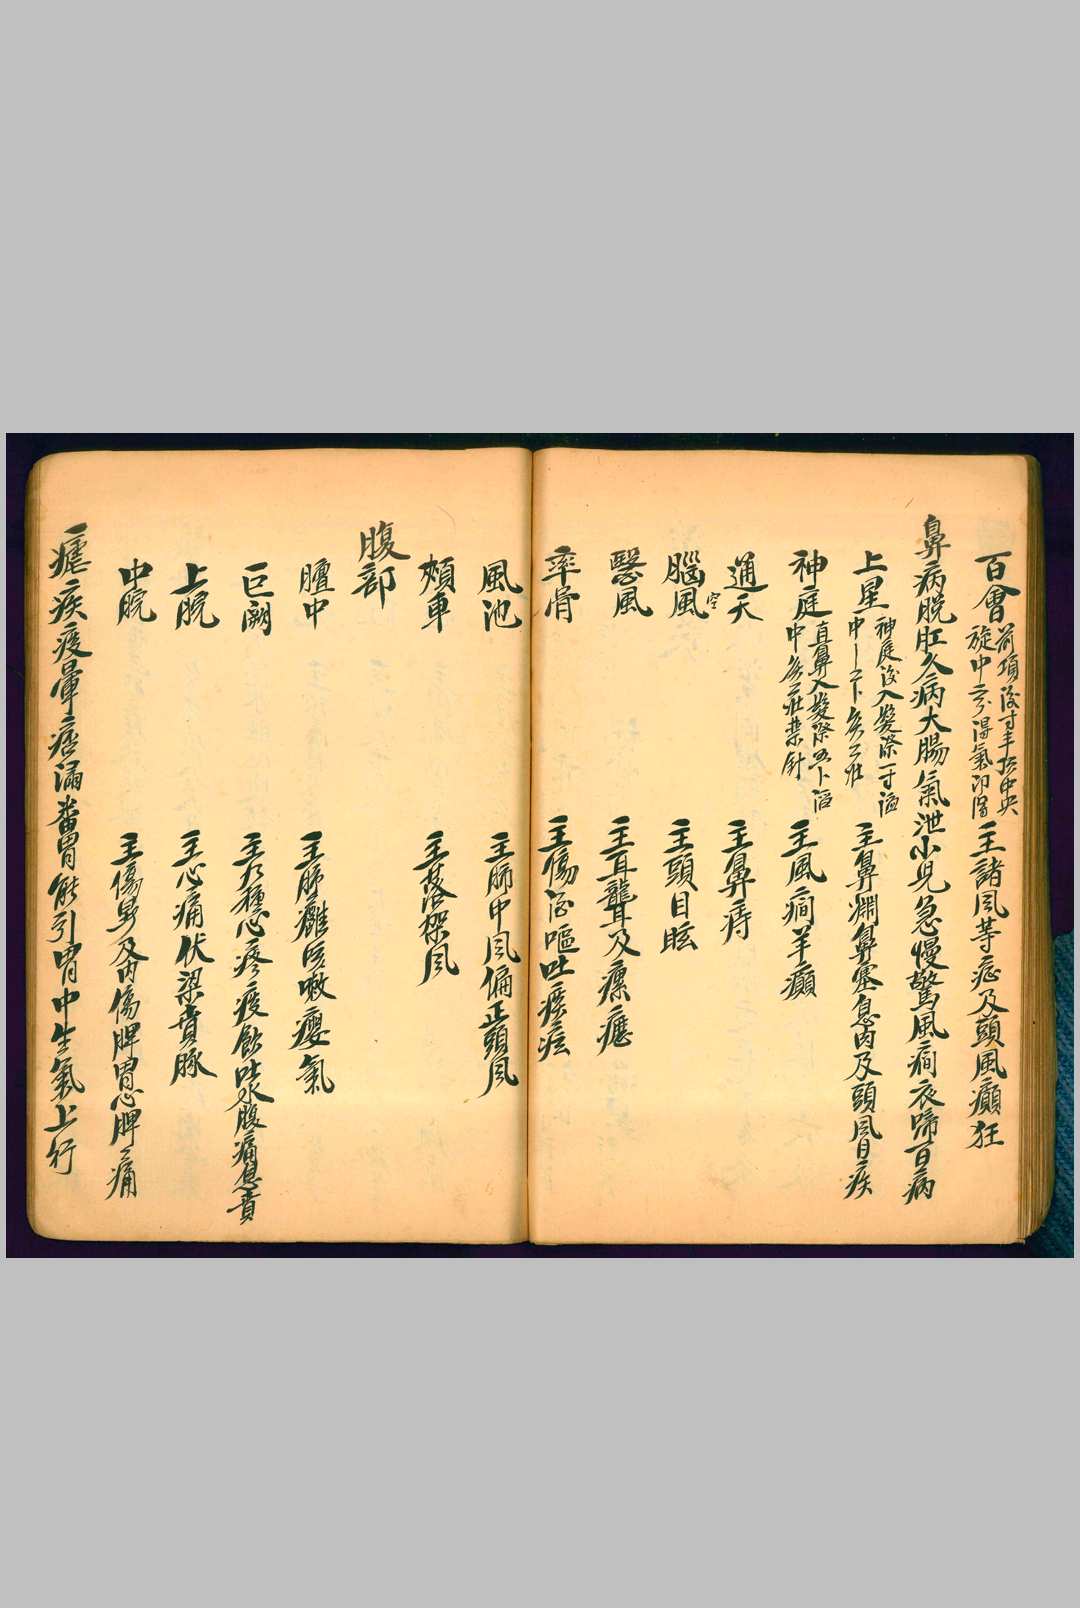 百會 前項後寸半折中央
旋中
主諸風等症及頭風癲狂
鼻病脫肛久病大腸氣泄小兒急慢驚風癇夜啼百病
上星 神庭後入髮際一寸
中 灸 壯
主鼻淵鼻塞息肉及頭風目疾
神庭 直鼻入髮際
中灸 壯禁針
主風癇羊癲
通天 主鼻痔
腦風空 主頭目眩
毉風 主耳聾耳及瘰癧
率骨 主傷酒嘔吐痰痃
風池 主肺中風偏正頭風
頰車 主落架風
腹部
膻中 主肺癰咳嗽癭氣
巨闕 主九種心疼痰飲吐水腹痛息賁
上脘 主心痛伏梁賁豚
中脘 主傷暑及內傷脾胃心脾痛
瘧疾痰暈痞滿番胃能引胃中生氣上行